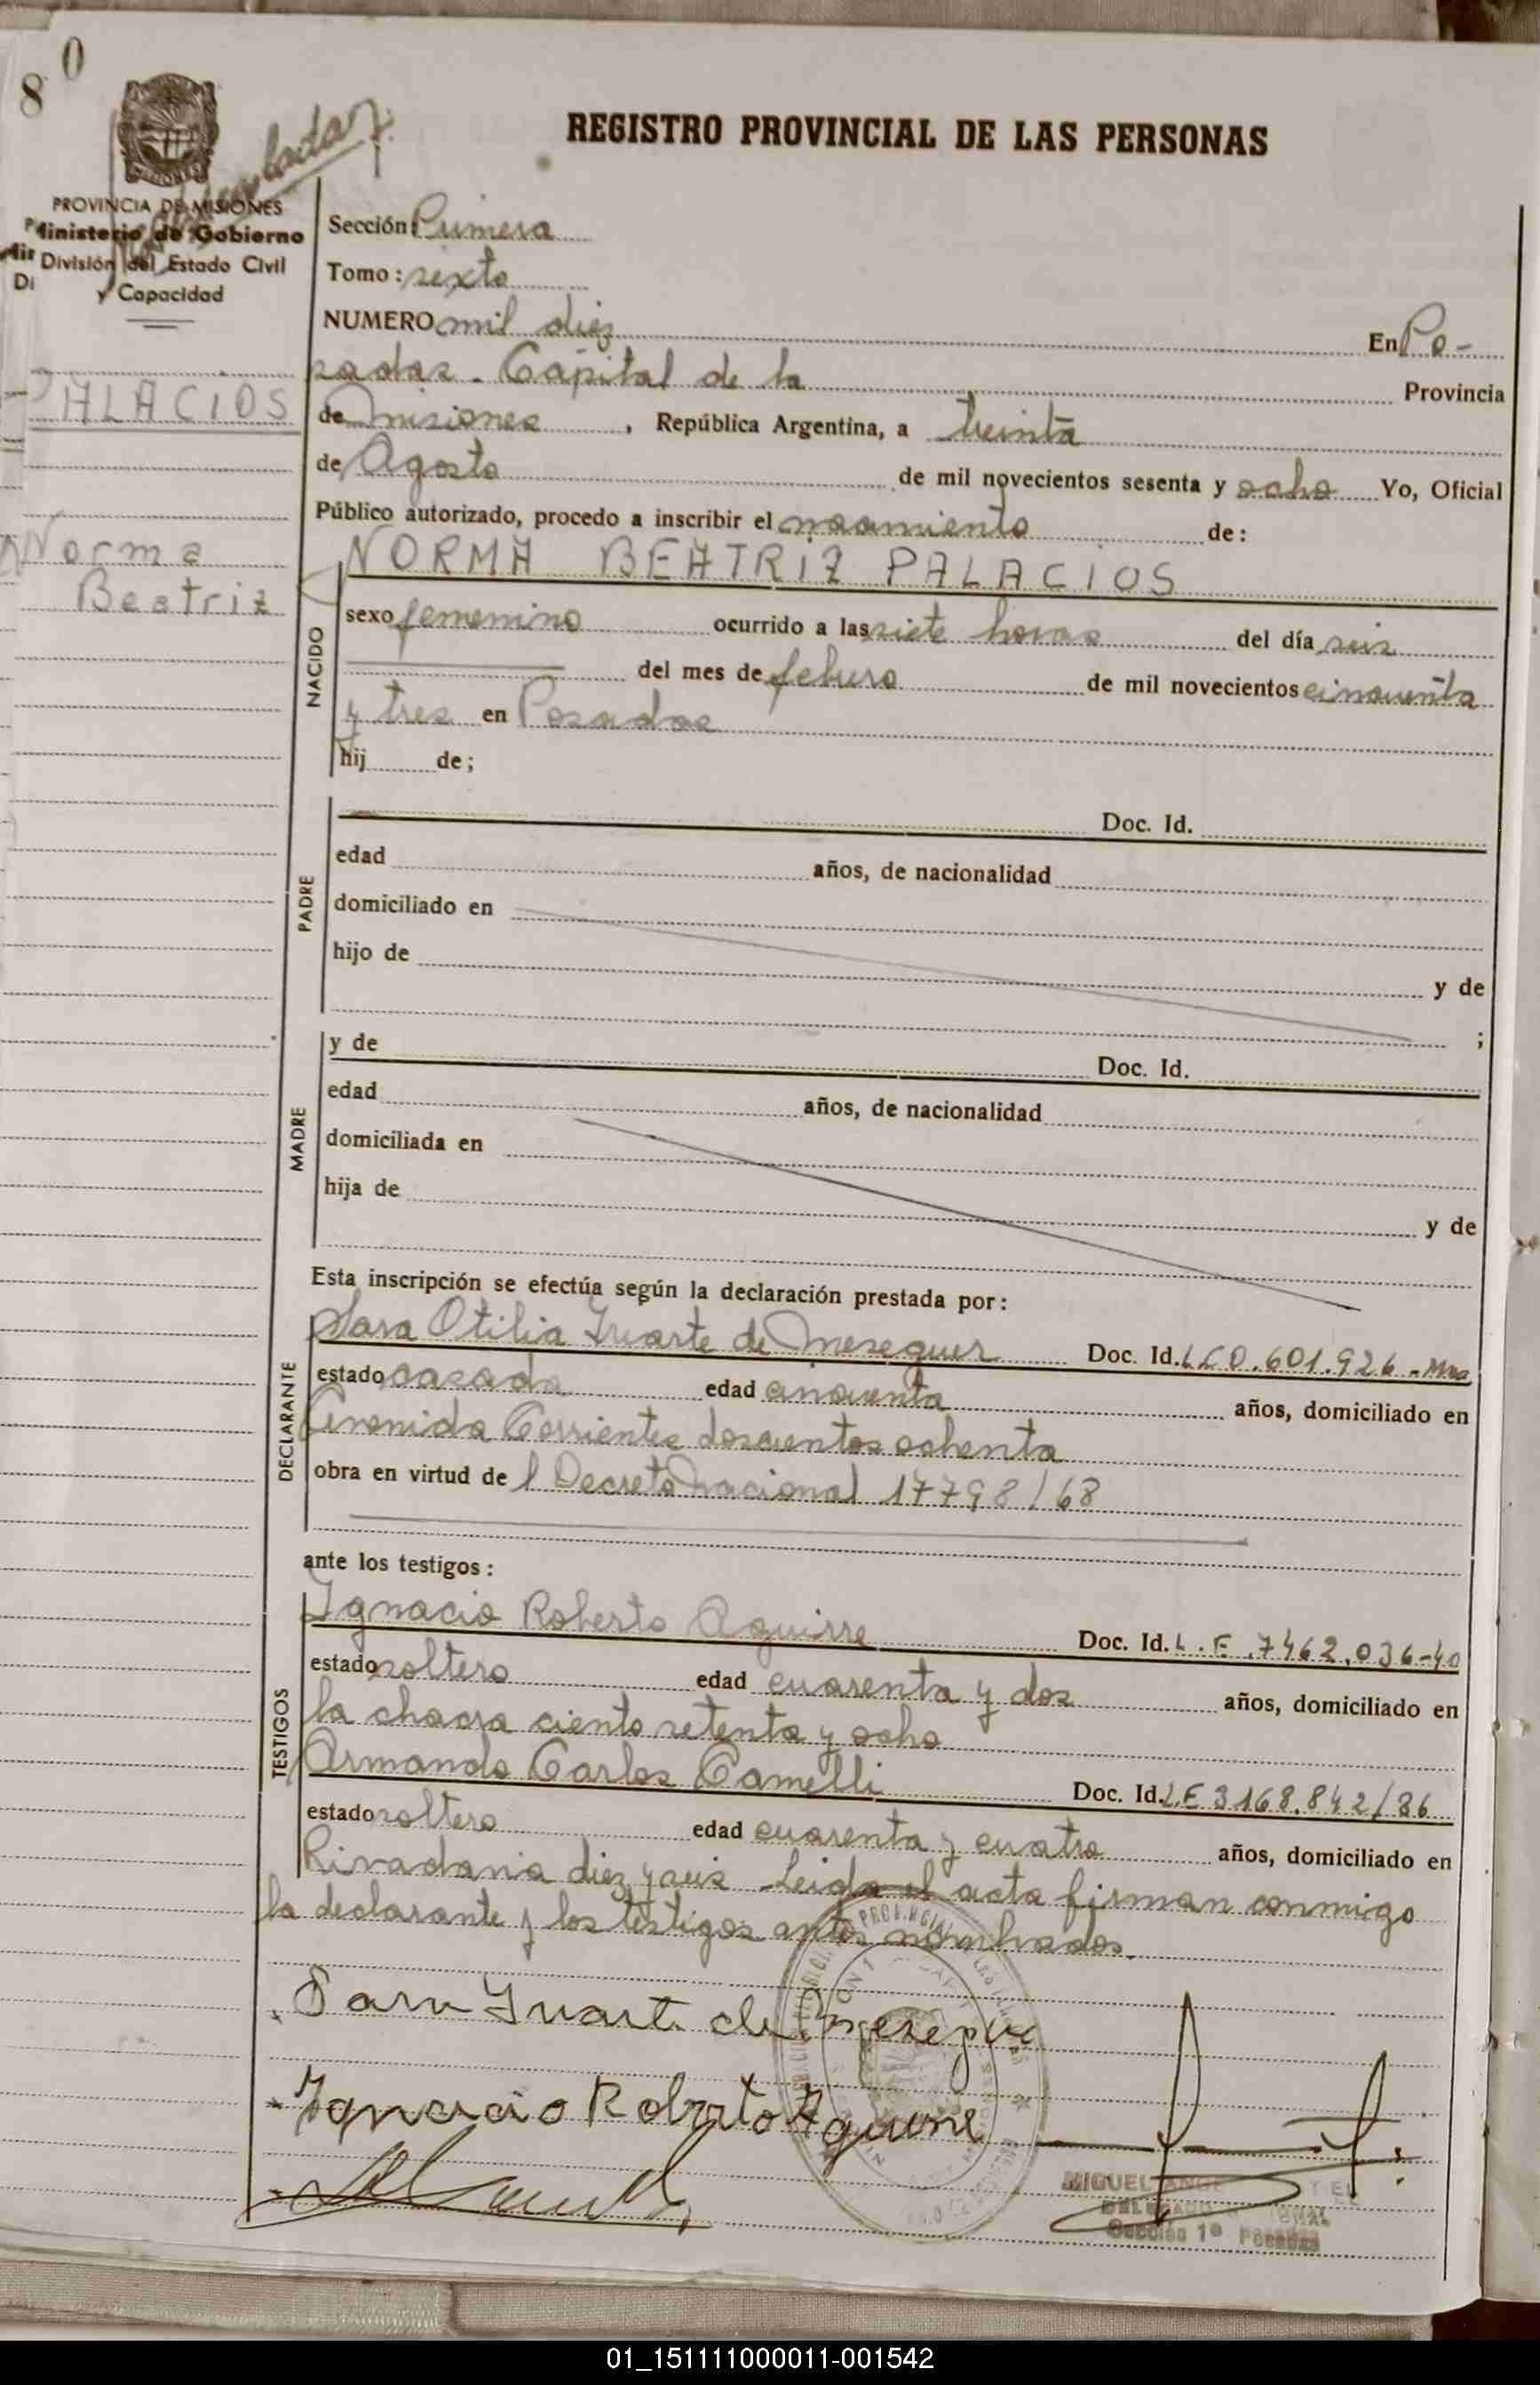 80
REGISTRO PROVINCIAL DE LAS PERSONAS
PROVINCIA DE MISIONES
Ministerio de Gobierno
División del Estado Civil
y Capacidad
PALACIOS
Norma
Beatriz
Sección: Primera
Tomo: sexto
NUMERO mil diez En Po-
sadas. Capital de la Provincia
de Misiones, República Argentina, a treinta
de Agosto de mil novecientos sesenta y ocho Yo, Oficial
Público autorizado, procedo a inscribir el nacimiento de:
NORMA BEATRIZ PALACIOS
NACIDO
sexo femenino ocurrido a las siete horas del día seis
del mes de febrero de mil novecientos cincuenta
y tres en Posadas
hij de;
PADRE
Doc. Id.
edad años, de nacionalidad
domiciliado en
hijo de y de
;
MADRE
y de Doc. Id.
edad años, de nacionalidad
domiciliada en
hija de y de
Esta inscripción se efectúa según la declaración prestada por:
DECLARANTE
Sara Otilia Iriarte de Meseguer Doc. Id. L C 0.601.926 -
estado casada edad cincuenta años, domiciliado en
Avenida Corrientes doscientos ochenta
obra en virtud de l Decreto nacional 17798/68
ante los testigos:
TESTIGOS
Ignacio Roberto Aguirre Doc. Id. L.E.7462.036-40
estado soltero edad cuarenta y dos años, domiciliado en
la chacra ciento setenta y ocho
Armando Carlos Camelli Doc. Id. LE 3168.842/86
estado soltero edad cuarenta y cuatro años, domiciliado en
Rivadavia diez y seis. Leida el acta firman conmigo
la declarante y los testigos antes nombrados.
Sara Iriarte de Meseguer
Ignacio Roberto Aguirre
MIGUEL
Sección 1ª Posadas
01_151111000011-001542